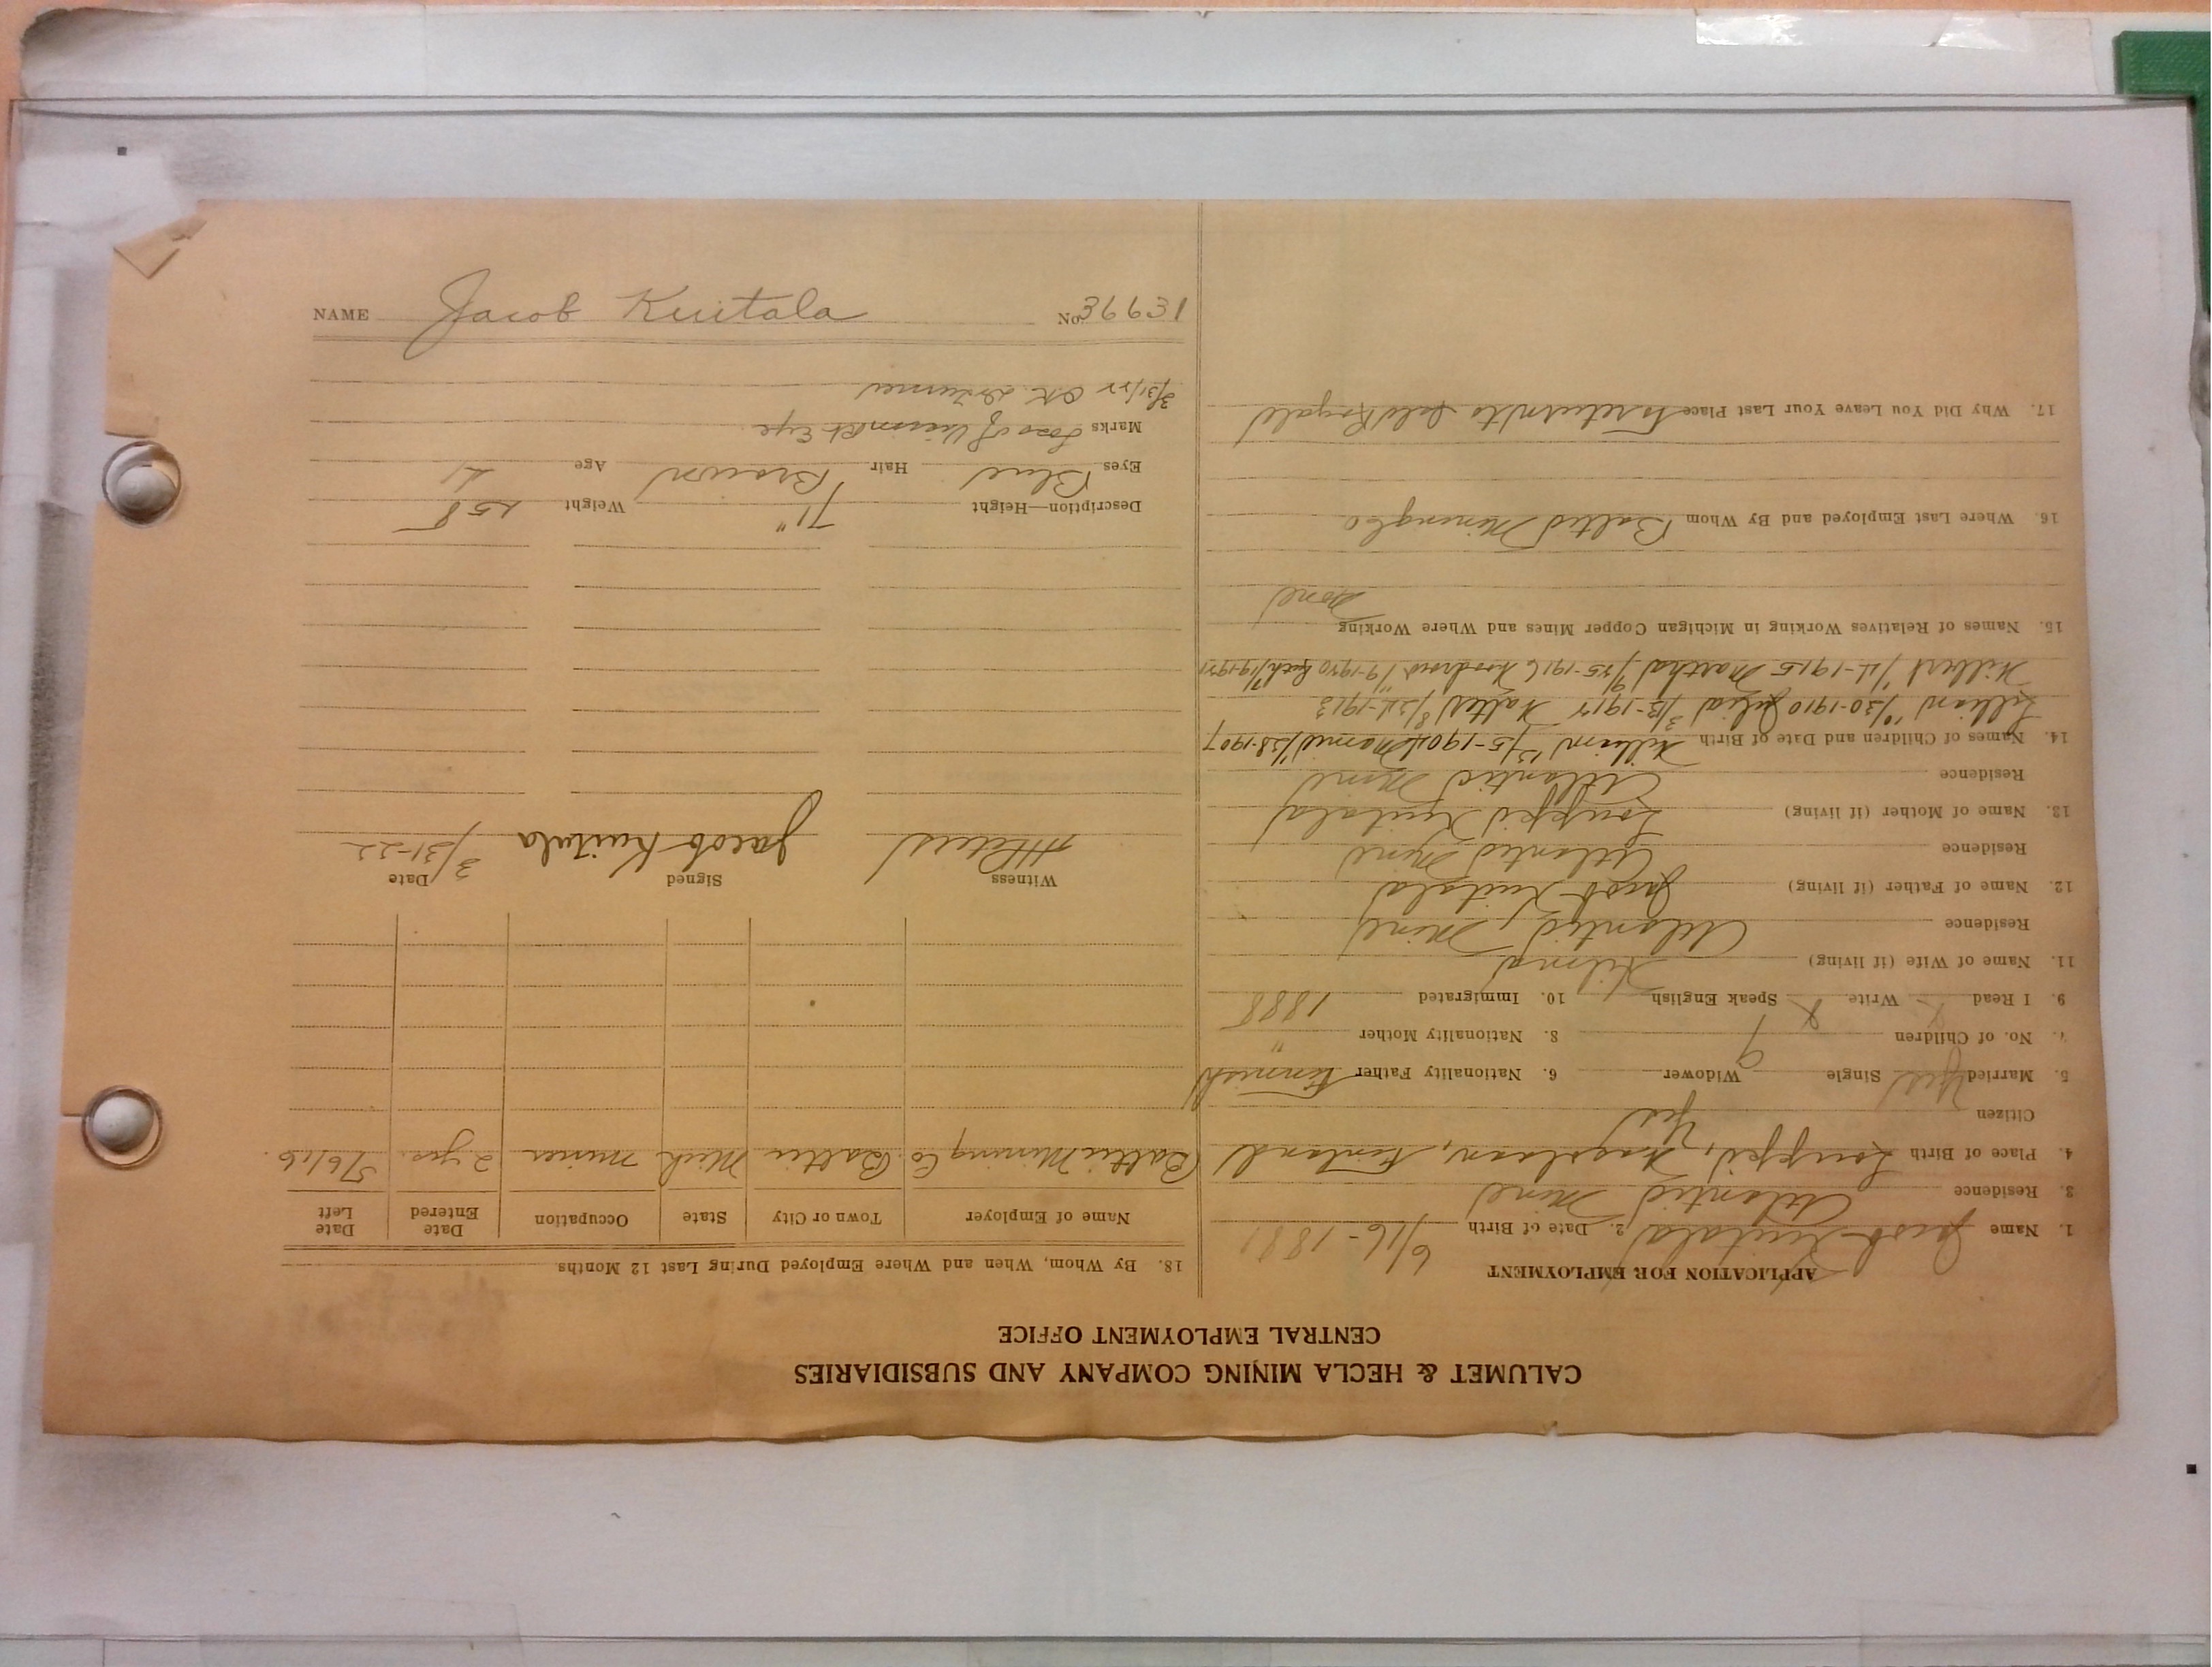 CALUMET & HECLA MINING COMPANY AND SUBSIDIARIES
CENTRAL EMPLOYMENT OFFICE
APPLICATION FOR EMPLOYMENT
1. Name Jacob Kuitala 2. Date of Birth 6/16-1881
3. Residence Atlantic Mine
4. Place of Birth Finland
Citizen Yes
5. Married Yes Single Widower 6. Nationality Father Finnish
7. No. of Children 9 8. Nationality Mother "
9. I Read Write x Speak English 10. Immigrated 1888
11. Name of Wife (if living) Hilma
Residence Atlantic Mine
12. Name of Father (if living) Jacob Kuitala
Residence Atlantic Mine
13. Name of Mother (if living) Kuitala
Residence Atlantic Mine
14. Names of Children and Date of Birth William Mamie
Lillian 10/30-1910 Julia 3/13-1912 Walter 8/24-1913
Martha 9/25-1916 Woodrow
15. Names of Relatives Working in Michigan Copper Mines and Where Working
None
16. Where Last Employed and By Whom Baltic Mining Co
17. Why Did You Leave Your Last Place To return to
18. By Whom, When and Where Employed During Last 12 Months
Name of Employer Town or City State Occupation Date Entered Date Left
Baltic Mining Co Baltic Mich miner 2 yrs.
Witness Signed Date
Jacob Kuitala 3/31-22
Description—Height 71" Weight 158
Eyes Blue Hair Brown Age
Marks Loss of Vision Rt Eye
3/31/22 OK
NAME Jacob Kuitala No. 39931